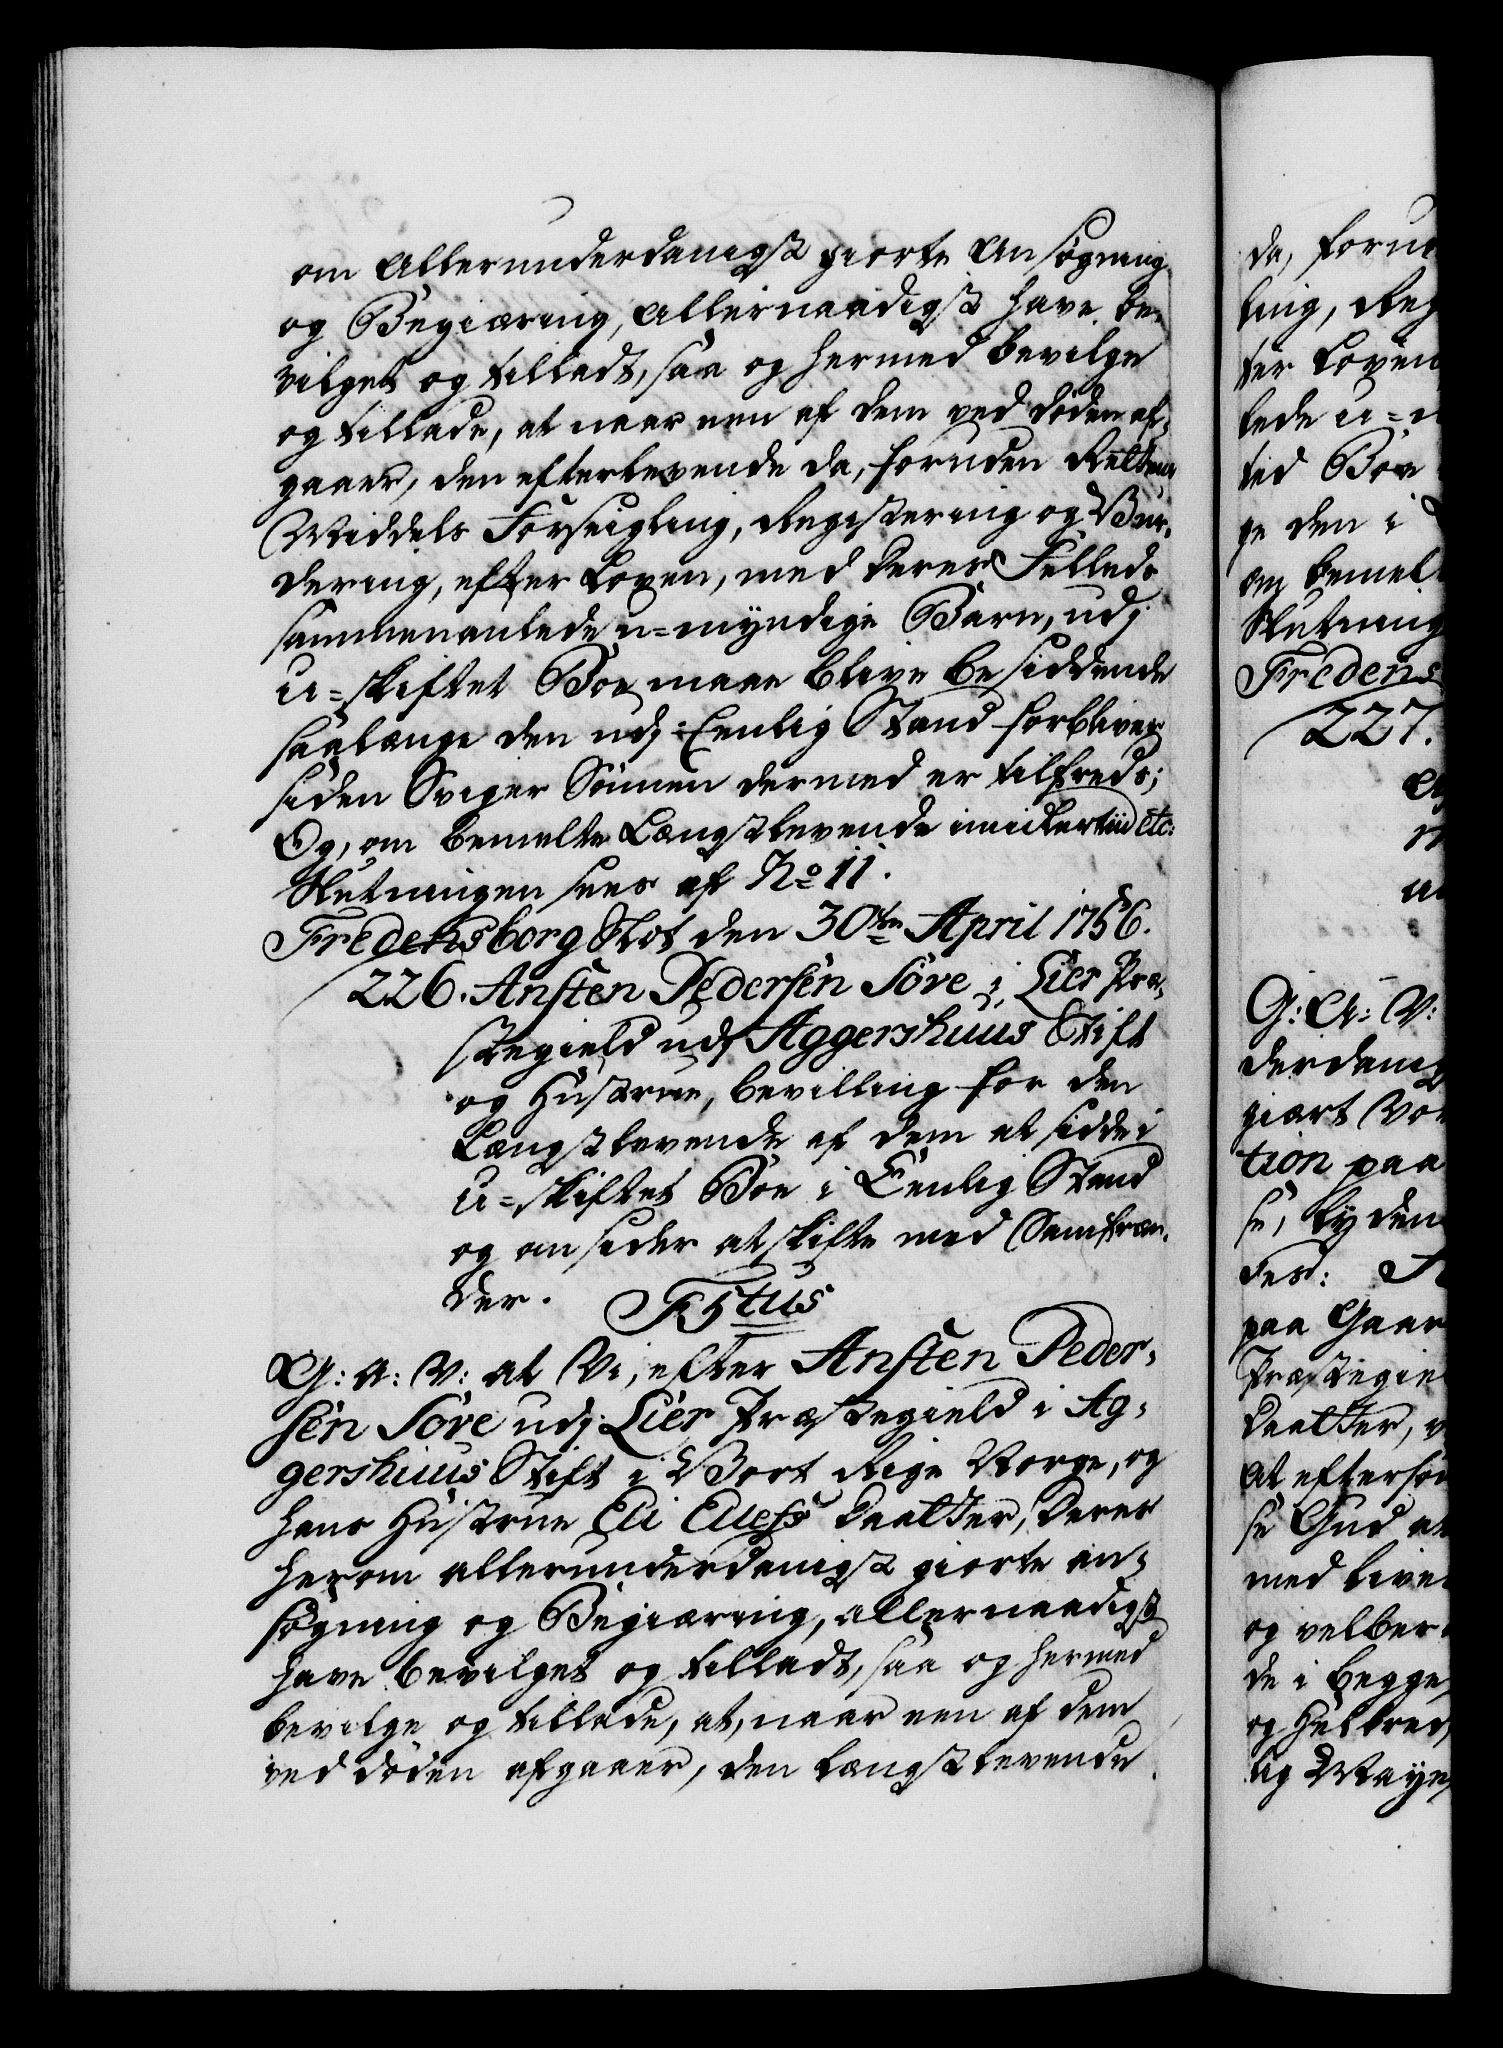 om allerunderdanigst giorte Ansøgning
og Begiæring, allernaadigst have be-
vilget og tilladt, saa og hermed bevilge
og tillade, at naar een af dem ved døden af-
gaaer, den efterlevende da, foruden Rettens
Middels Forseigling, Registering og Vur-
dering, efter Loven, med deres Fælleds
sammenavlede u=myndige Børn, udj
u=skiftet Boe maae blive besiddende
saalænge den udj Eenlig Stand forbliver
siden Sviger Sönnen dermed er tilfreds;
Og, om bemelte Længstlevende imidlertiid etc:
Slutningen sees af No 11.
Fredensborg Slot den 30te April 1756.
226. Ansten Pedersen Söre i Lier Præ-
stegield udj Aggershuus Stift
og Hustrue, bevilling for den
Længstlevende af dem at sidde i
u=skiftet Boe i Eenlig Stand
og ansider at skifte med Samfræn-
der. F5tus
G: A: V: at Vi, efter Ansten Peder-
sen Söre udj Lier Præstegield i Ag-
gershuus Stift i Vort Rige Norge, og
hans Hustrue Eli Ellefs Daatter, deres
herom allerunderdanigst giorte an-
søgning og Begiæring, allernaadigst
have bevilget og tilladt, saa og hermed
bevilge og tillade, at, naar een af dem
ved døden afgaaer, den længstlevende
da, foru
ling, Reg
ter Loven
lede u=
ted Boe
ge den i
om bemel
Slutning
Fredens
227.
G: A: V:
derdanig
giært Vo
tion paa
se, ty den
paa Gaar
Præstegie
Daatter, v
at efterso
se Gud a
med live
og velber
de i begge
og Helbred,
lig Maye